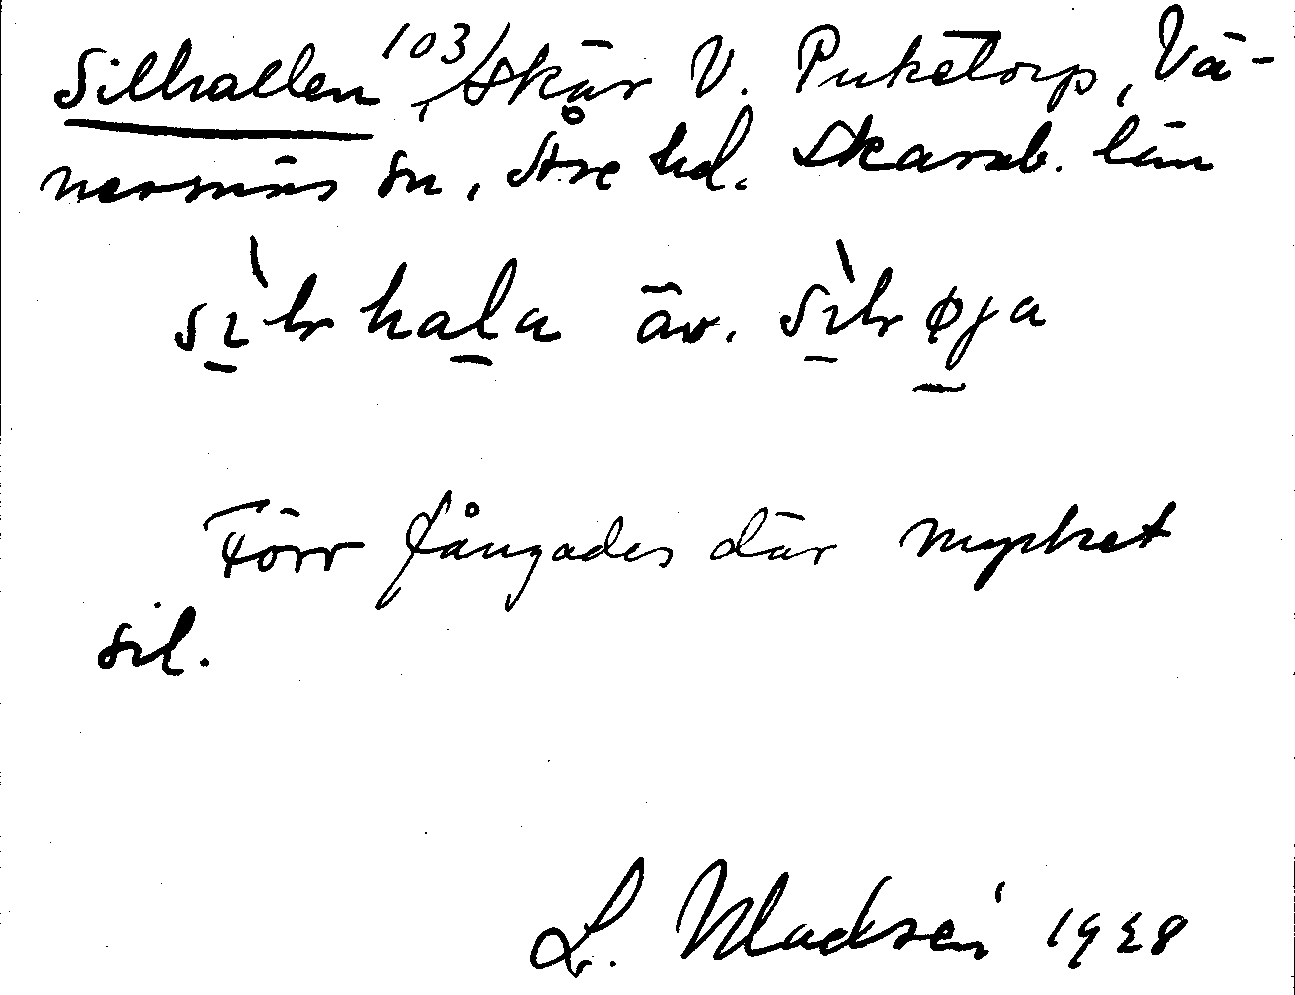 Silhallen 103/, skär V. Puketorp, Vä-
nersnäs sn, Åse hd. Skarab. län
sìlhala äv. sìløja
Förr fångades där mycket
sil.
L. 1928